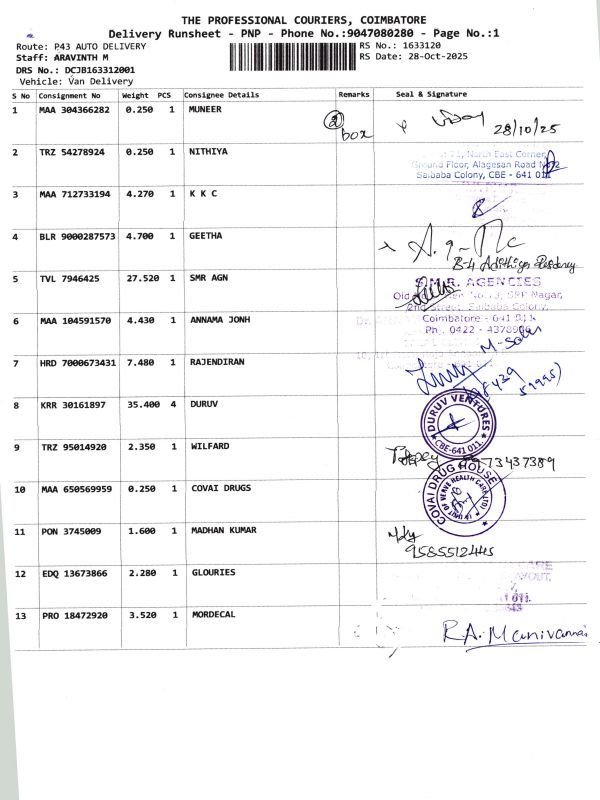 THE PROFESSIONAL COURIERS, COIMBATORE
Delivery Runsheet - PNP - Phone No.:9047080280 - Page No.:1
Route: P43 AUTO DELIVERY
RS No.: 1633120
Staff: ARAVINTH M
RS Date: 28-Oct-2025
DRS No.: DCJB163312001
Vehicle: Van Delivery
S No Consignment No Weight PCS Consignee Details Remarks Seal & Signature
1 MAA 304366282 0.250 1 MUNEER 2 box 28/10/25
2 TRZ 54278924 0.250 1 NITHIYA
North East Corner,
Ground Floor, Alagesan Road
Saibaba Colony, CBE - 641 011
3 MAA 712733194 4.270 1 K K C
4 BLR 9000287573 4.700 1 GEETHA
5 TVL 7946425 27.520 1 SMR AGN
S.M.R. AGENCIES
SRP Nagar,
Saibaba Colony,
Coimbatore - 641 011.
Ph. 0422 -
6 MAA 104591570 4.430 1 ANNAMA JONH
7 HRD 7000673431 7.480 1 RAJENDIRAN
8 KRR 30161897 35.400 4 DURUV
DURUV VENTURES
CBE-641 011.
9 TRZ 95014920 2.350 1 WILFARD
10 MAA 650569959 0.250 1 COVAI DRUGS
COVAI DRUG HOUSE
11 PON 3745009 1.600 1 MADHAN KUMAR
9585512445
12 EDQ 13673866 2.280 1 GLOURIES
13 PRO 18472920 3.520 1 MORDECAL
R.A. Manivannan